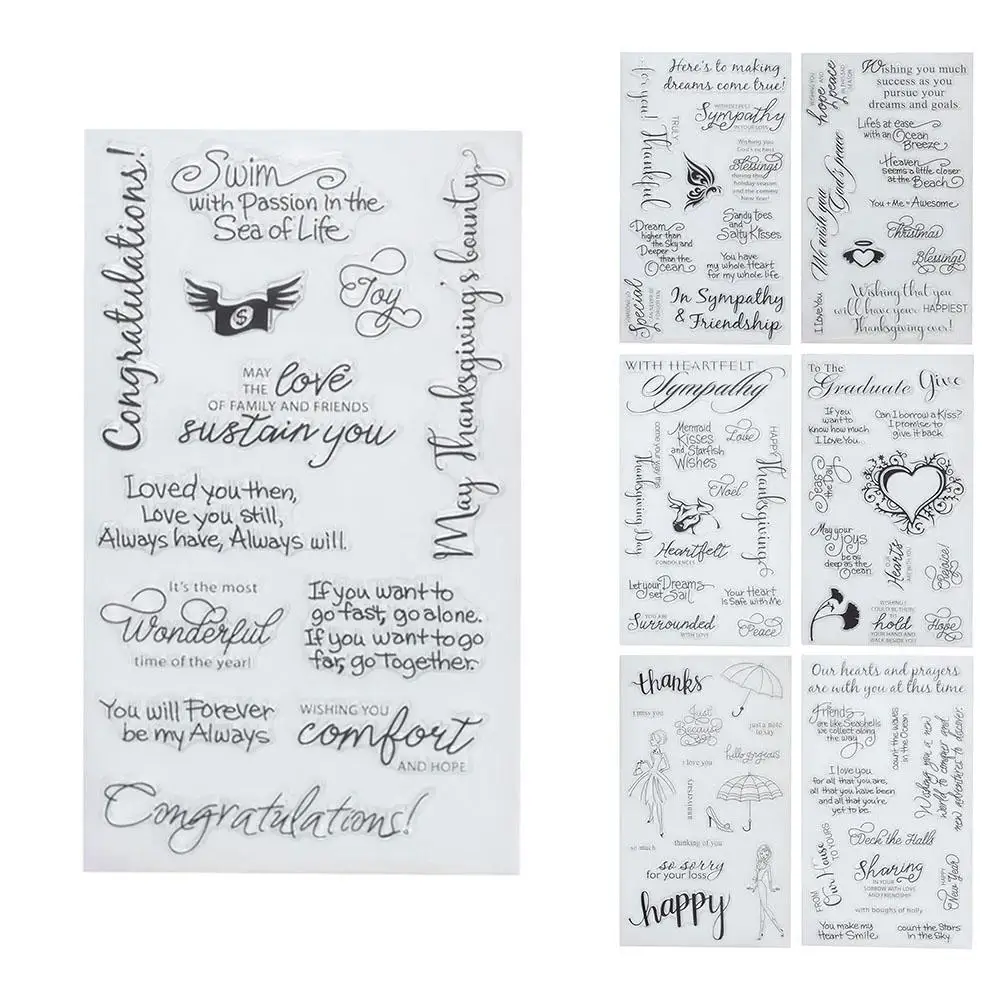 Congratulations!
Swim
with Passion in the
Sea of Life
Joy
May Thanksgiving's bounty
$
MAY
THE love
OF FAMILY AND FRIENDS
sustain you
Loved you then,
Love you still,
Always have, Always will.
It's the most
Wonderful
time of the year!
If you want to
go fast, go alone.
If you want to go
far, go Together.
You will Forever
be my Always
WISHING YOU
comfort
AND HOPE
Congratulations!
for you!
Here's to making
dreams come true!
TRULY
Thankful
WITH DEEPEST
Sympathy
IN YOUR LOSS
Wishing you
God's richest
Blessings
during this
holiday season
and the coming
New Year!
Dream
higher than
the Sky and
Deeper
than the
Ocean
Sandy toes
and
Salty Kisses
You have
my whole Heart
for my whole life
Special
In Sympathy
& Friendship
WISHING YOU
hope AND peace
IN THIS SAD
SEASON
Wishing you much
success as you
pursue your
dreams and goals
Life's at ease
with an Ocean
Breeze
Heaven
seems a little closer
at the Beach
We wish you God's peace
You + Me = Awesome
Christmas
Blessings
I Love You
Wishing that you
will have your HAPPIEST
Thanksgiving ever!
WITH HEARTFELT
Sympathy
come your way
Thanksgiving Day
Mermaid
Kisses
and Starfish
Wishes
Love
Noel
HAPPY
Thanksgiving
Heartfelt
CONDOLENCES
Let your Dreams
set Sail
Your Heart
is Safe with Me
YOU ARE
Surrounded
WITH LOVE
Peace
To The
Graduate Give
If you
want to
know how much
I Love You...
Can I borrow a Kiss?
I promise to
give it back
Seas
the Day
May your
Joys
be as
deep as the
Ocean
OUR
Hearts
ARE WITH YOU
Rejoice!
WISHING I
COULD BE THERE
hold
YOUR HAND AND
WALK BESIDE YOU
Hope
thanks
i miss you
Just
Because
just a note
to say
hello gorgeous
i love you
anniversary
so much
thinking of you
so sorry
for your loss
happy
Our hearts and prayers
are with you at this time
Friends
are like Seashells
we collect along
the way
count the waves
in the Ocean
Wishing you a new
world to conquer and
new adventures to discover.
I love you
for all that you are,
all that you have been
and all that you're
yet to be.
Deck the Halls
FROM
Our House
TO YOURS
Sharing
IN YOUR
SORROW WITH LOVE
AND FRIENDSHIP
HAPPY
New Year
with boughs of holly
You make my
Heart Smile
count the Stars
in the Sky